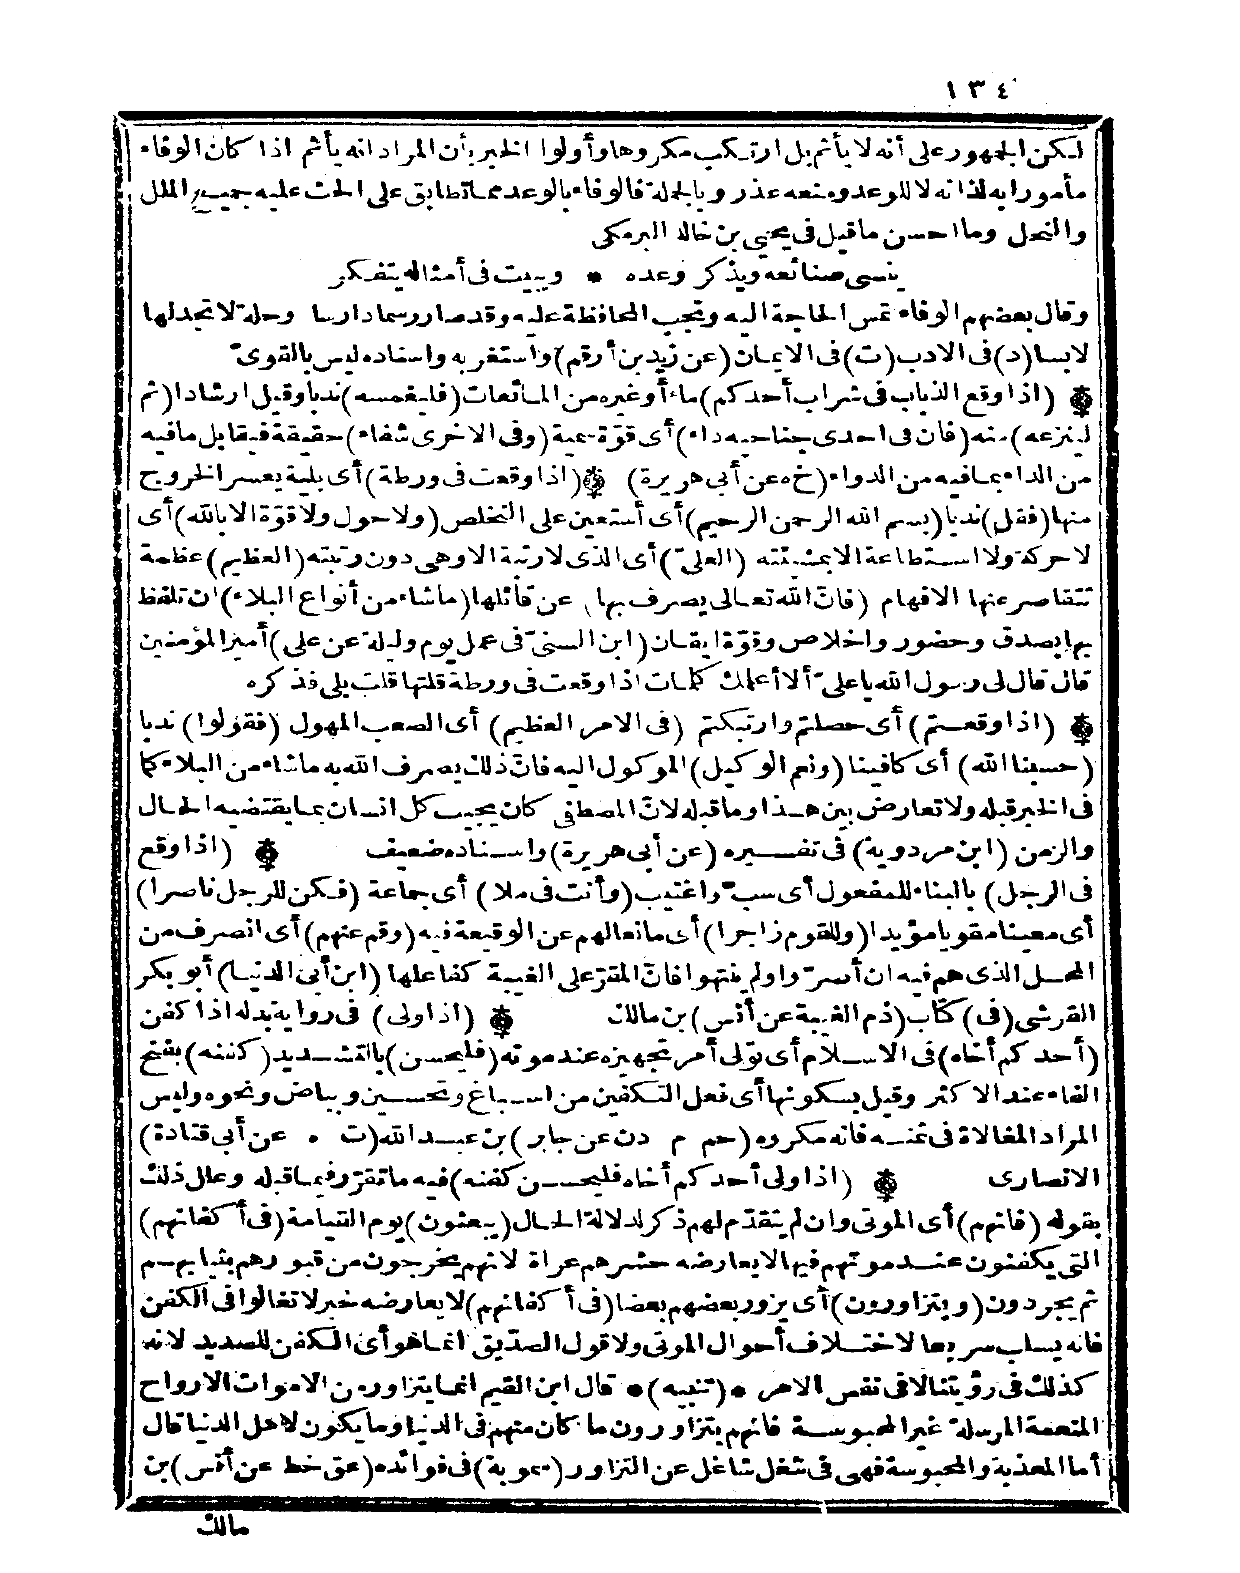 ١٣٤
لكن الجمهور على أنه لا يأثم بل ارتكب مكروها وأولوا الخبر بأن المراد انه يأثم اذا كان الوفاء
مأمورا به لذاته لا للوعد ومنعه عذر وبالجملة فالوفاء بالوعد مما تطابق على الحث عليه جميع الملل
والنحل وما احسن ما قيل فى يحيى بن خالد البرمكى
ينسى صنائعه ويذكر وعده * ويبيت فى أمثاله يتفكر
وقال بعضهم الوفاء تمس الحاجة اليه وتجب المحافظة عليه وقد صار رسما دارسا وحلة لا تجد لها
لابسا (د) فى الادب (ت) فى الايمان (عن زيد بن أرقم) واستغربه واسناده ليس بالقوىّ
(اذا وقع الذباب فى شراب أحدكم) ماء أو غيره من المائعات (فليغمسه) ندبا وقيل ارشادا (ثم
لينزعه) منه (فان فى احدى جناحيه داء) أى قوّة سمية (وفى الاخرى شفاء) حقيقة فيقابل ما فيه
من الداء بما فيه من الدواء (خ ه عن أبى هريرة) (اذا وقعت فى ورطة) أى بلية يعسر الخروج
منها (فقل) ندبا (بسم الله الرحمن الرحيم) أى أستعين على التخلص (ولا حول ولا قوّة الا بالله) أى
لا حركة ولا استطاعة الا بمشيئته (العلىّ) أى الذى لا رتبة الا وهى دون رتبته (العظيم) عظمة
تتقاصر عنها الافهام (فانّ الله تعالى يصرف بها) عن قائلها (ما شاء من أنواع البلاء) ان تلفظ
بها بصدق وحضور واخلاص وقوّة ايقان (ابن السنىّ فى عمل يوم وليلة عن على) أمير المؤمنين
قال قال لى رسول الله يا علىّ ألا أعلمك كلمات اذا وقعت فى ورطة قلتها قلت بلى فذكره
(اذا وقعتم) أى حصلتم وارتبكتم (فى الامر العظيم) أى الصعب المهول (فقولوا) ندبا
(حسبنا الله) أى كافينا (ونعم الوكيل) الموكول اليه فانّ ذلك يصرف الله به ما شاء من البلاء كما
فى الخبر قبله ولا تعارض بين هذا وما قبله لانّ المصطفى كان يجيب كل انسان بما يقتضيه الحال
والزمن (ابن مردوية) فى تفسيره (عن أبى هريرة) واسناده ضعيف (اذا وقع
فى الرجل) بالبناء للمفعول أى سبّ واغتيب (وأنت فى ملا) أى جماعة (فكن للرجل ناصرا)
أى معينا مقويا مؤيدا (وللقوم زاجرا) أى مانعا لهم عن الوقيعة فيه (وقم عنهم) أى انصرف من
المحل الذى هم فيه ان أصرّوا ولم ينتهوا فانّ المقرّ على الغيبة كفاعلها (ابن أبى الدنيا) أبو بكر
القرشى (فى) كتاب (ذم الغيبة عن أنس) بن مالك (اذا ولى) فى رواية بدله اذا كفن
(أحدكم أخاه) فى الاسلام أى تولى أمر تجهيزه عند موته (فليحسن) بالتشديد (كفنه) بفتح
الفاء عند الاكثر وقيل بسكونها أى فعل التكفين من اسباغ وتحسين وبياض ونحوه وليس
المراد المغالاة فى ثمنه فانه مكروه (حم م د ن عن جابر) بن عبد الله (ت ه عن أبى قتادة)
الانصارى (اذا ولى أحدكم أخاه فليحسن كفنه) فيه ما تقرّر فيما قبله وعال ذلك
بقوله (فانهم) أى الموتى وان لم يتقدّم لهم ذكر لدلالة الحال (يبعثون) يوم القيامة (فى أكفانهم)
التى يكفنون عند موتهم فيها لا يعارضه حشرهم عراة لانهم يخرجون من قبورهم بثيابهم
ثم يجردون (ويتزاورون) أى يزور بعضهم بعضا (فى أكفانهم) لا يعارضه خبر لا تغالوا فى الكفن
فانه يسلب سريعا لاختلاف أحوال الموتى ولا قول الصدّيق انما هو أى الكفن للصديد لانه
كذلك فى رؤيتنا لا فى نفس الامر * (تنبيه) * قال ابن القيم انما يتزاور من الاموات الارواح
المنعمة المرسلة غير المحبوسة فانهم يتزاورون ما كان منهم فى الدنيا وما يكون لاهل الدنيا قال
أما المعذبة والمحبوسة فهى فى شغل شاغل عن التزاور (سموية) فى فوائده (عق خط عن أنس) بن
مالك